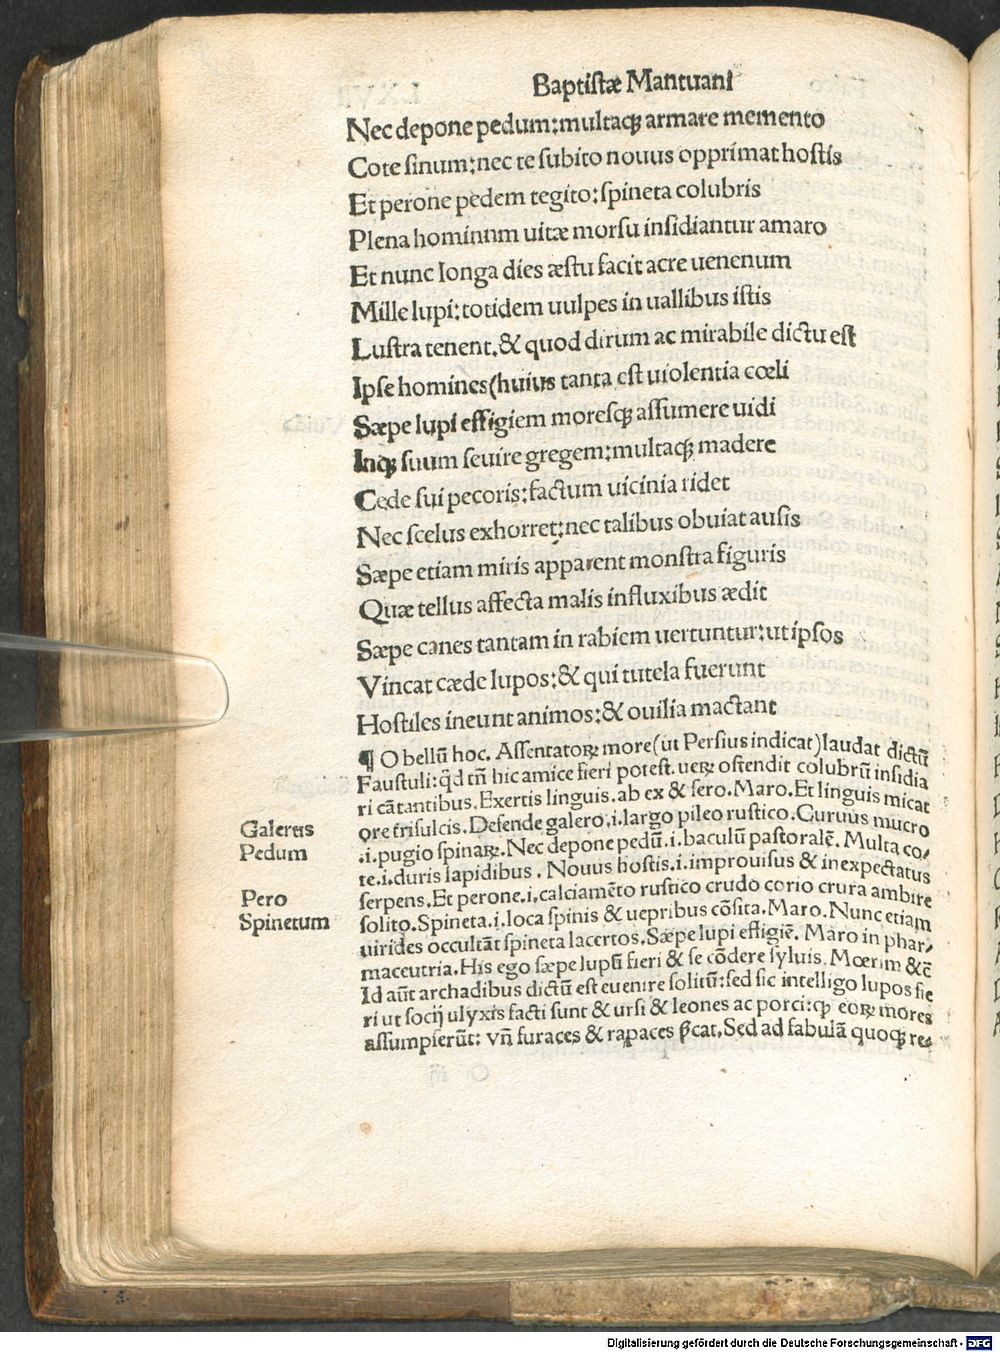 Baptistæ Mantuani
Nec depone pedum:multaqꝫ armare memento
Cote sinum:nec te subito nouus opprimat hostis
Et perone pedem tegito:spineta colubris
Plena hominnm uitæ morsu insidiantur amaro
Et nunc longa dies æstu facit acre uenenum
Mille lupi:totidem uulpes in uallibus istis
Lustra tenent.& quod dirum ac mirabile dictu est
Ipse homines(huius tanta est uiolentia cœli
Sæpe lupi effigiem moresqꝫ assumere uidi
Inqꝫ suum seuire gregem:multaqꝫ madere
Cede sui pecoris:factum uicinia ridet
Nec scelus exhorret:nec talibus obuiat ausis
Sæpe etiam miris apparent monstra figuris
Quæ tellus affecta malis influxibus ædit
Sæpe canes tantam in rabiem uertuntur:ut ipsos
Vincat cæde lupos:& qui tutela fuerunt
Hostiles ineunt animos:& ouilia mactant
¶ O bellū hoc. Assentatoꝝ more(ut Persius indicat)laudat dictū
Faustuli:qđ tñ hic amice fieri potest.ueꝝ ostendit colubrū insidia
ri cātantibus.Exertis linguis.ab ex & sero.Maro.Et linguis micat
Galerus
ore trisulcis.Defende galero.i.largo pileo rustico.Curuus mucro
Pedum
.i.pugio spinaꝝ.Nec depone pedū.i.baculū pastoralē. Multa co-
te.i.duris lapidibus . Nouus hostis.i.improuisus & inexpectatus
Pero
serpens.Et perone.i.calciamēto rustico crudo corio crura ambire
Spinetum
solito.Spineta.i.loca spinis & uepribus cōsita.Maro.Nunc etiam
uirides occultāt spineta lacertos.Sæpe lupi effigiē. Maro in phar-
maceutria.His ego sæpe lupū fieri & se cōdere syluis. Mœrim &c̄
Id aūt archadibus dictū est euenire solitū:sed sic intelligo lupos fie
ri ut socij ulyxis facti sunt & ursi & leones ac porci:qꝫ eoꝝ mores
assumpserūt: vñ furaces & rapaces p̄cat.Sed ad fabulā quoqꝫ re-
Digitalisierung gefördert durch die Deutsche Forschungsgemeinschaft - DFG